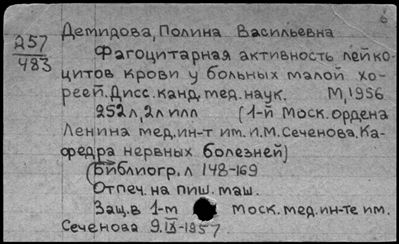 6
Демидова, Полина Васильевна
257
483
Фагоцитарная активность лейко-
цитов крови у больных малой хо-
реей. Дисс. канд. мед. наук. М, 1956
252 л, 2 л илл (1-й Моск. ордена
Ленина мед. ин-т им. И.М. Сеченова. Ка-
федра нервных болезней)
(Библиогр. л 148-169
Отпеч. на пиш. маш.
Защ. в 1-м Моск. мед. ин-те им.
Сеченова 9.IX-1957.